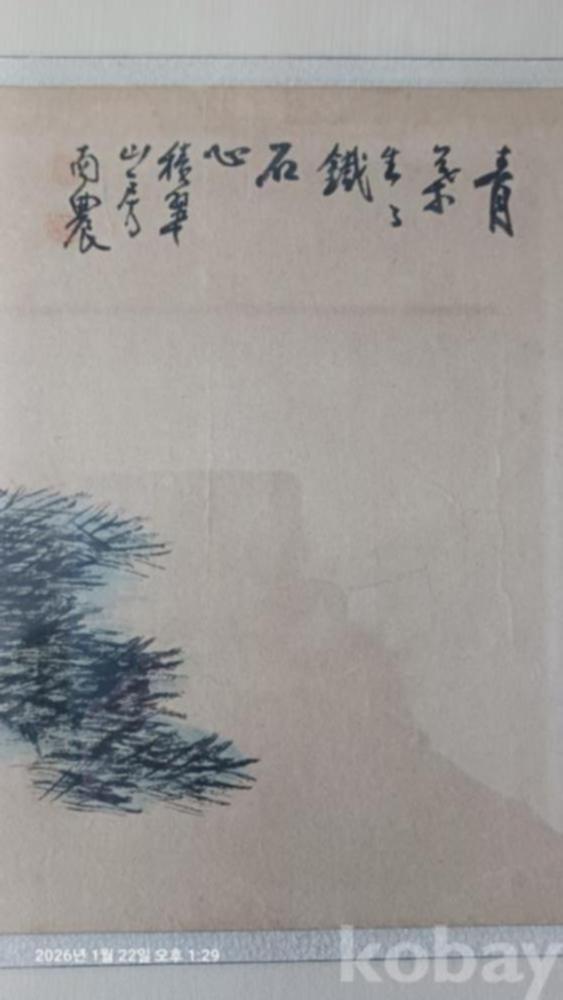 青
葉
生々
鐵
石
心
積翠
山房
雨農
2026년 1월 22일 오후 1:29
kobay